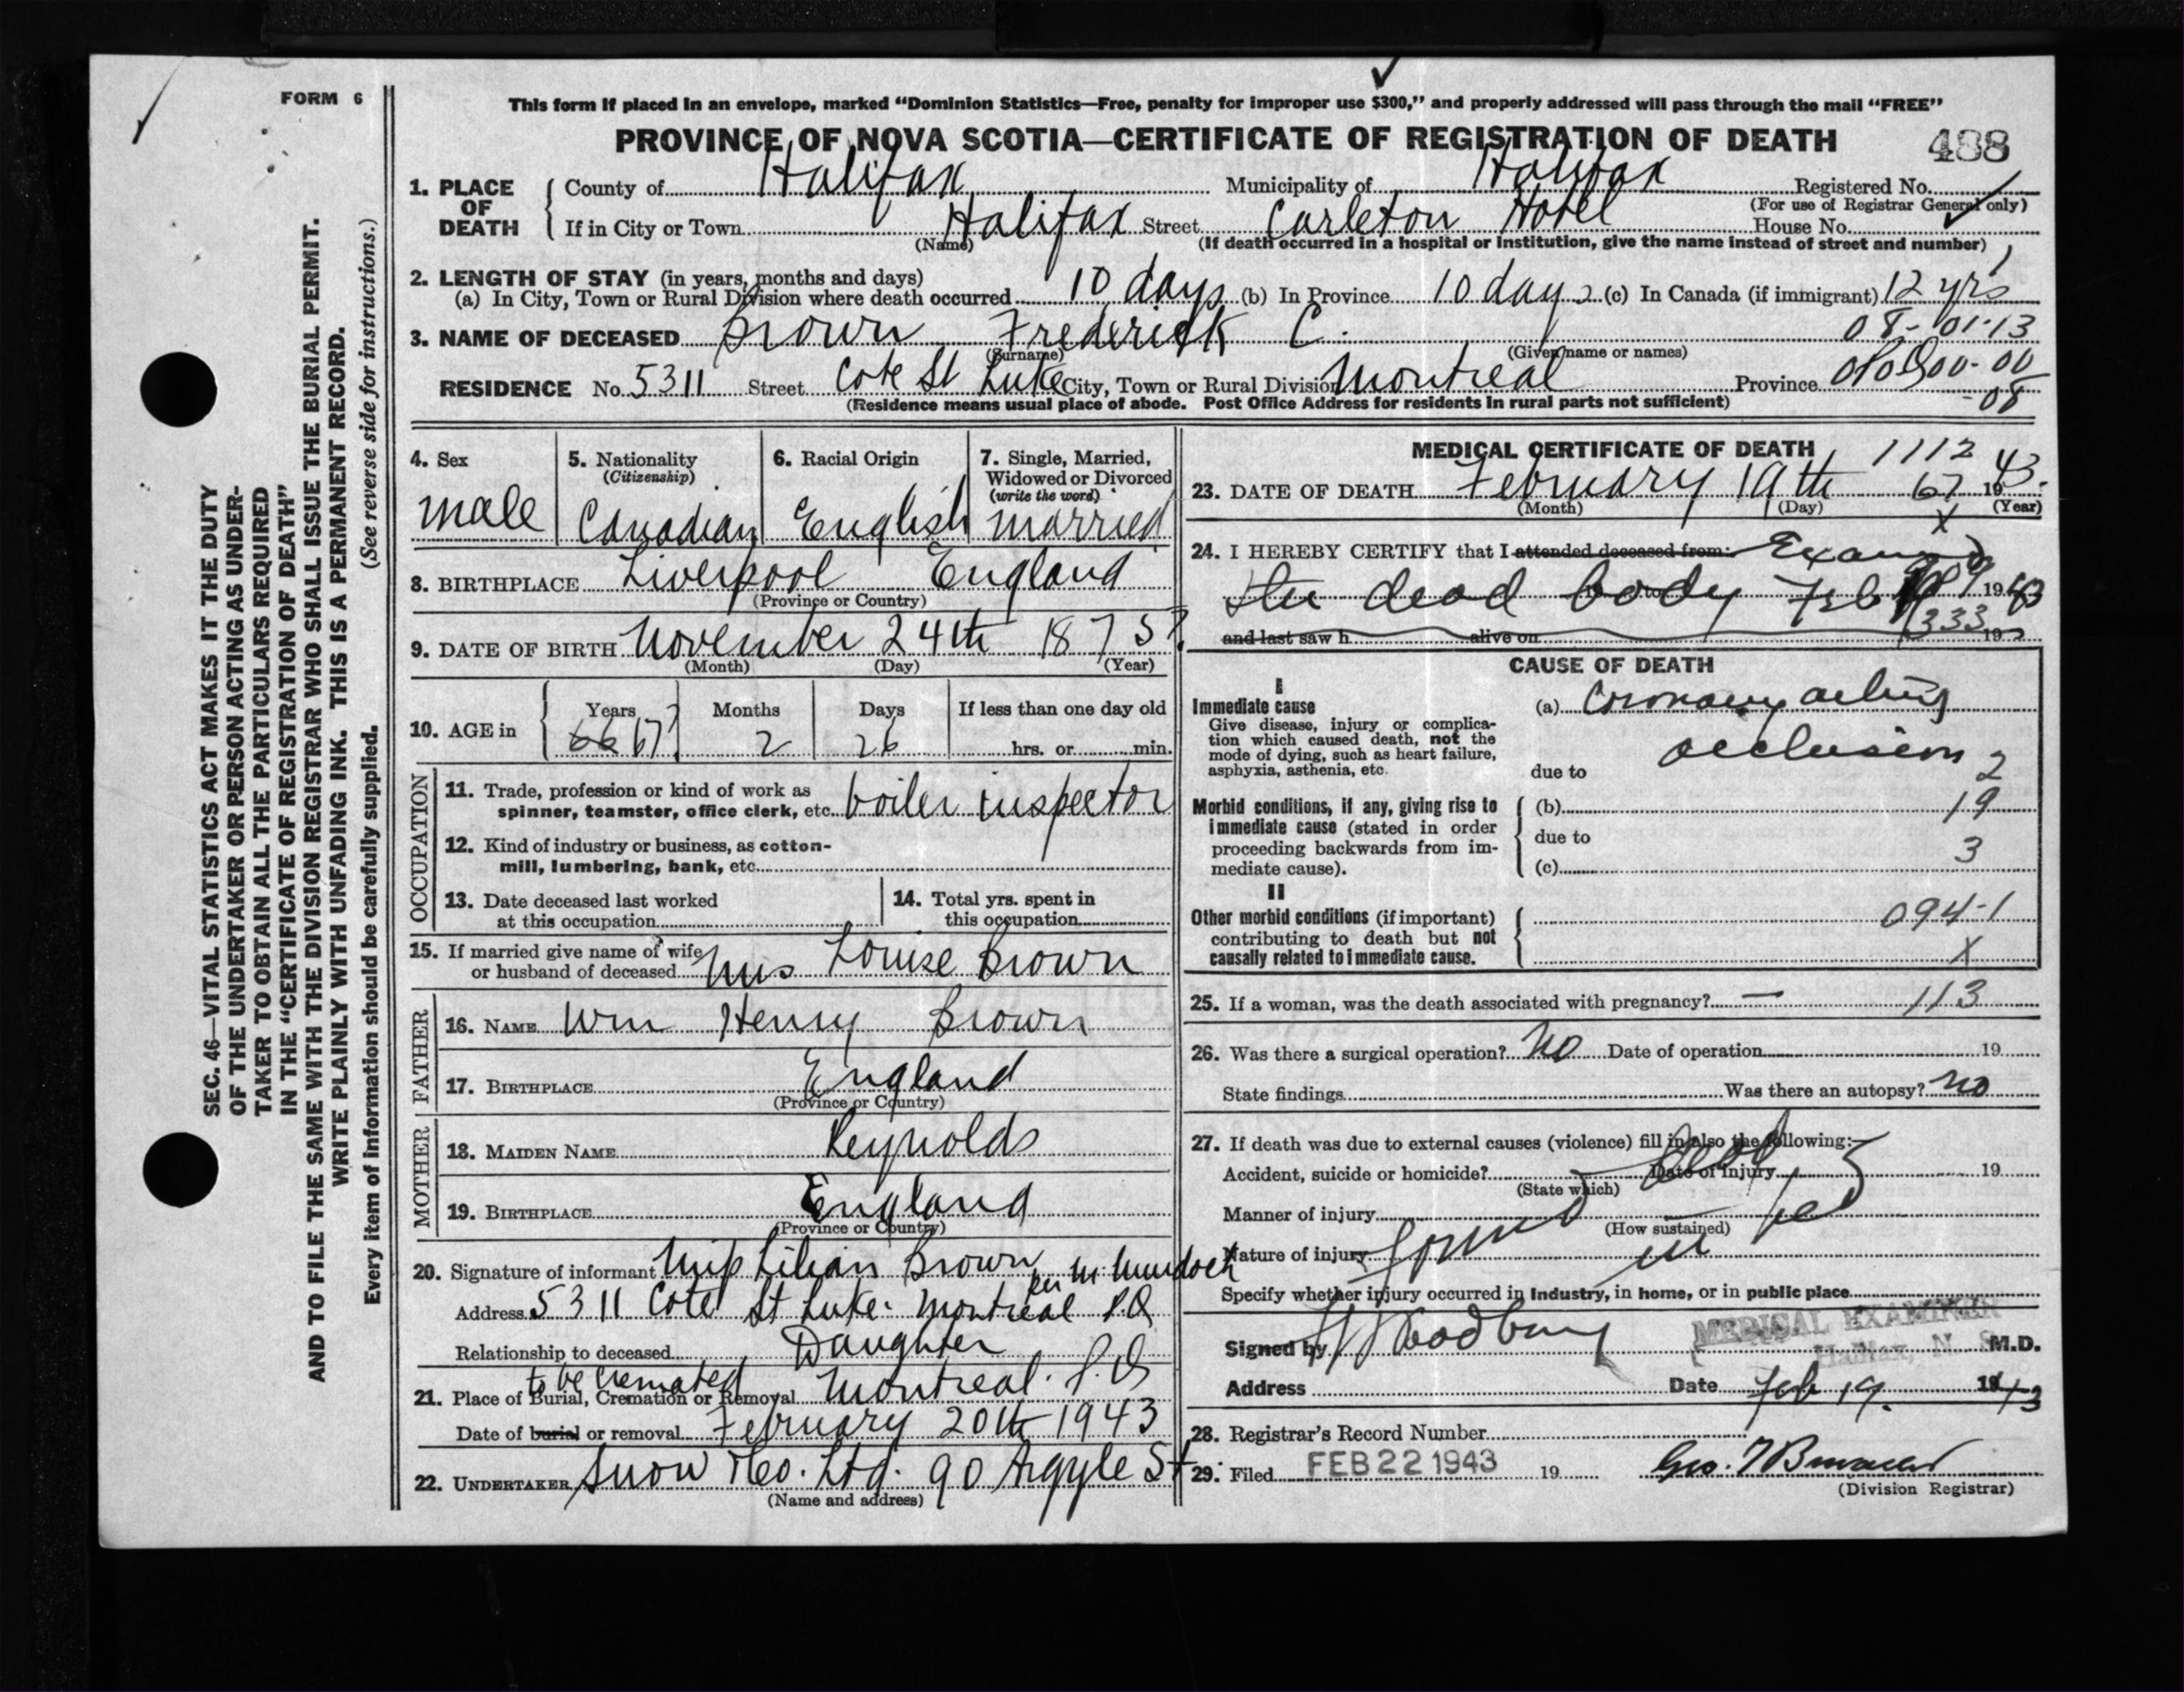 FORM 6
This form if placed in an envelope, marked “Dominion Statistics—Free, penalty for improper use $300,” and properly addressed will pass through the mail “FREE”
PROVINCE OF NOVA SCOTIA—CERTIFICATE OF REGISTRATION OF DEATH
488
1. PLACE OF DEATH
County of Halifax Municipality of Halifax Registered No.
(For use of Registrar General only)
If in City or Town Halifax Street Carleton Hotel House No.
(Name) (If death occurred in a hospital or institution, give the name instead of street and number)
2. LENGTH OF STAY (in years, months and days)
(a) In City, Town or Rural Division where death occurred 10 days (b) In Province 10 days (c) In Canada (if immigrant) 12 yrs
08-01-13
3. NAME OF DECEASED Brown Frederick C.
(Surname) (Given name or names)
RESIDENCE No. 5311 Street Cote St Luke City, Town or Rural Division Montreal Province
-08
(Residence means usual place of abode. Post Office Address for residents in rural parts not sufficient)
4. Sex
male
5. Nationality
(Citizenship)
Canadian
6. Racial Origin
English
7. Single, Married,
Widowed or Divorced
(write the word)
married
8. BIRTHPLACE Liverpool England
(Province or Country)
9. DATE OF BIRTH November 24th 1875?
(Month) (Day) (Year)
10. AGE in
Years Months Days If less than one day old
66 67? 2 26 hrs. or min.
OCCUPATION
11. Trade, profession or kind of work as
spinner, teamster, office clerk, etc. boiler inspector
12. Kind of industry or business, as cotton-
mill, lumbering, bank, etc.
13. Date deceased last worked
at this occupation
14. Total yrs. spent in
this occupation
15. If married give name of wife
or husband of deceased Mrs Louise Brown
FATHER
16. NAME Wm Henry Brown
17. BIRTHPLACE England
(Province or Country)
MOTHER
18. MAIDEN NAME Reynolds
19. BIRTHPLACE England
(Province or Country)
20. Signature of informant Miss Lilian Brown per M. Murdoch
Address 5311 Cote St Luke. Montreal P.Q
Relationship to deceased Daughter
to be cremated
21. Place of Burial, Cremation or Removal Montreal. P.Q
Date of burial or removal February 20th 1943
22. UNDERTAKER Snow & Co. Ltd. 90 Argyle St
(Name and address)
MEDICAL CERTIFICATE OF DEATH
1112
23. DATE OF DEATH February 19th 67 1943.
(Month) (Day) (Year)
X
24. I HEREBY CERTIFY that I attended deceased from:
the dead body Feb 19 1943
and last saw h alive on 19
333
CAUSE OF DEATH
I
Immediate cause
Give disease, injury or complica-
tion which caused death, not the
mode of dying, such as heart failure,
asphyxia, asthenia, etc.
(a) Coronary artery
occlusion 2
due to
Morbid conditions, if any, giving rise to
immediate cause (stated in order
proceeding backwards from im-
mediate cause).
(b) 19
due to
3
(c)
II
Other morbid conditions (if important)
contributing to death but not
causally related to immediate cause.
094-1
X
25. If a woman, was the death associated with pregnancy? — 113
26. Was there a surgical operation? No Date of operation 19
State findings Was there an autopsy? No
27. If death was due to external causes (violence) fill in also the following:—
Accident, suicide or homicide? Date of injury 19
(State which)
Manner of injury
(How sustained)
found dead in bed
Nature of injury
Specify whether injury occurred in industry, in home, or in public place
Signed by Woodbury M.D.
MEDICAL EXAMINER
Halifax, N. S.
Address Date Feb 19. 1943
28. Registrar's Record Number
29. Filed FEB 22 1943 19
(Division Registrar)
SEC. 46—VITAL STATISTICS ACT MAKES IT THE DUTY
OF THE UNDERTAKER OR PERSON ACTING AS UNDER-
TAKER TO OBTAIN ALL THE PARTICULARS REQUIRED
IN THE “CERTIFICATE OF REGISTRATION OF DEATH”
AND TO FILE THE SAME WITH THE DIVISION REGISTRAR WHO SHALL ISSUE THE BURIAL PERMIT.
WRITE PLAINLY WITH UNFADING INK. THIS IS A PERMANENT RECORD.
Every item of information should be carefully supplied. (See reverse side for instructions.)